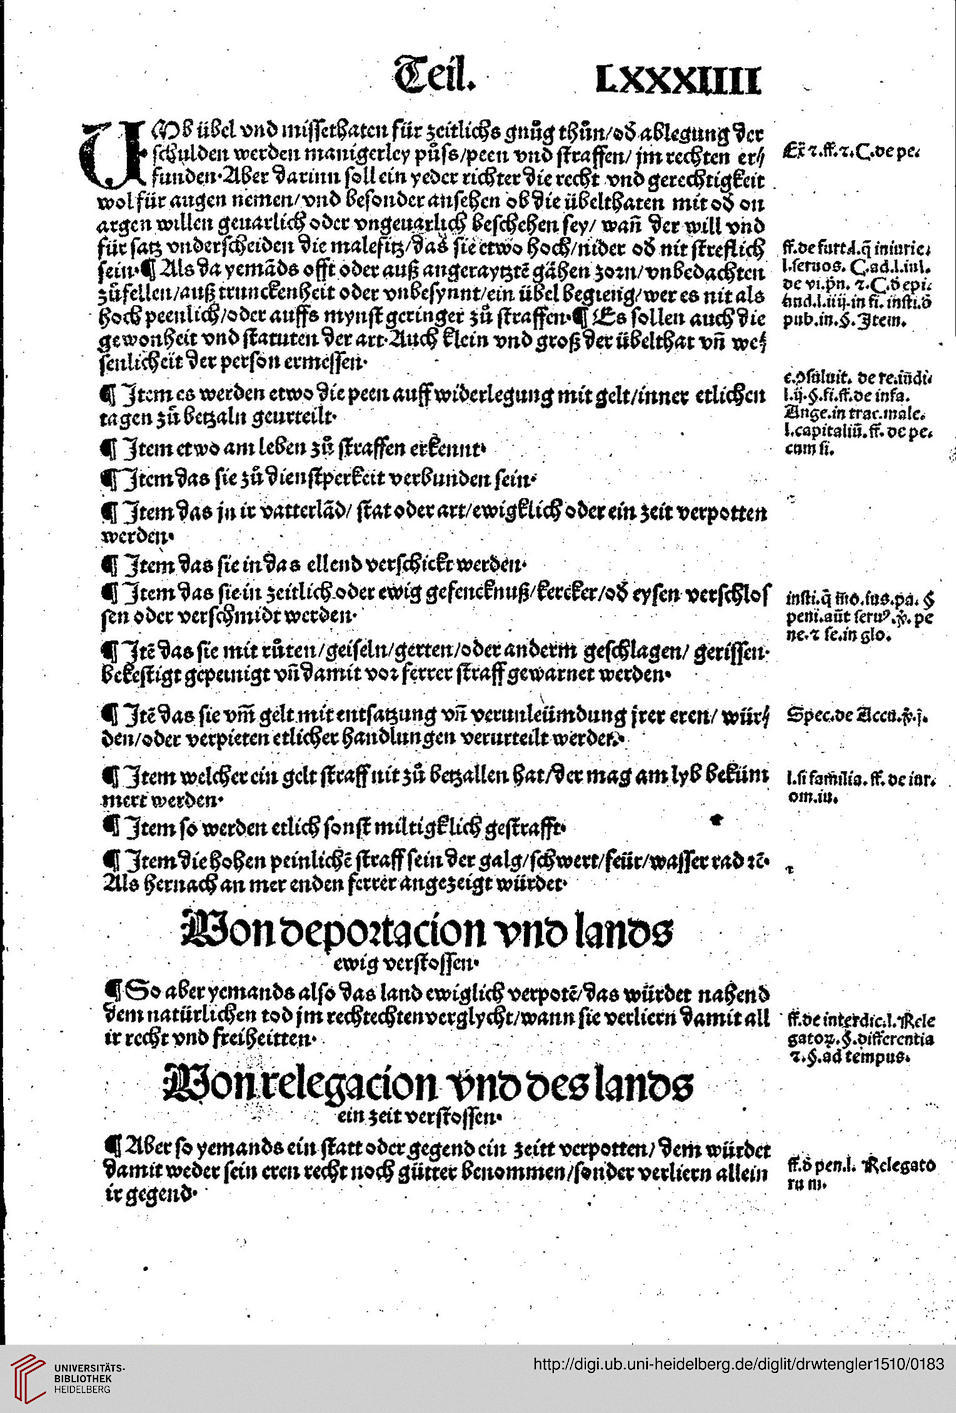 Teil. LXXXIIII
UMb übel vnd missethaten für zeitlichs gnůg thůn/od ablegung der
schulden werden manigerley půss/peen vnd straffen/ jm rechten er⸗
funden. Aber darinn soll ein yeder richter die recht vnd gerechtigkeit
wol für augen nemen/vnd besonder ansehen ob die übelthaten mit od on
argen willen geuarlich oder vngeuarlich beschehen sey/ wañ der will vnd
für satz vnderscheiden die malefitz/das sie etwo hoch/nider od nit streflich
sein. ¶ Als da yemãds offt oder auß angerayztẽ gãhen zorn/vnbedachten
zůfellen/auß trunckenheit oder vnbesynnt/ein übel begieng/wer es nit als
hoch peenlich/oder auffs mynst geringer zů straffen. ¶ Es sollen auch die
gewonheit vnd statuten der art. Auch klein vnd groß der übelthat vñ we⸗
senlicheit der person ermessen.
¶ Item es werden etwo die peen auff widerlegung mit gelt/inner etlichen
tagen zů betzaln geurteilt.
¶ Item etwo am leben zů straffen erkennt.
¶ Item das sie zů dienstperkeit verbunden sein.
¶ Item das jn ir vatterlãd/ stat oder art/ewigklich oder ein zeit verpotten
werden.
¶ Item das sie in das ellend verschickt werden.
¶ Item das sie in zeitlich oder ewig gefencknuß/kercker/od eysen verschlos
sen oder verschmidt werden.
¶ Itẽ das sie mit růten/geiseln/gerten/oder anderm geschlagen/ gerissen.
bekestigt gepeinigt vñ damit vor ferrer straff gewarnet werden.
¶ Itẽ das sie vm̃ gelt mit entsatzung vñ verunleümdung jrer eren/ wür⸗
den/oder verpieten etlicher handlungen verurteilt werden.
¶ Item welcher ein gelt straff nit zů betzallen hat/der mag am lyb beküm
mert werden.
¶ Item so werden etlich sonst miltigklich gestrafft.
¶ Item die hohen peinlichẽ straff sein der galg/schwert/feür/wasser rad ꝛc̃.
Als hernach an mer enden ferrer angezeigt würdet.
Von deportacion vnd lands
ewig verstossen.
¶ So aber yemands also das land ewiglich verpotẽ/das würdet nahend
dem natürlichen tod jm rechtechten verglycht/wann sie verliern damit all
ir recht vnd freiheitten.
Von relegacion vnd des lands
ein zeit verstossen.
¶ Aber so yemands ein statt oder gegend ein zeitt verpotten/ dem würdet
damit weder sein eren recht noch gütter benommen/sonder verliern allein
ir gegend.
Ex̃ ⁊.ff.⁊.C.de pe.
ff.de furt.l.q̃ iniurie.
l.seruos. C.ad.l.iul.
de vi.pñ. ⁊.C.d epi.
And.l.iiij.in fi. insti.d
pub.in.§.Item.
de re.iũdi.
l.ij.§.fi.ff.de infa.
Ange.in trac.male.
l.capitaliũ.ff.de pe.
cum si.
insti.q̃ mo.ius.pa. §
ne.⁊ se.in glo.
Spec.de Accu.
l.si familia.ff.de iur.
om.iu.
ff.de interdic.l.Rele
gatoꝝ.§.differentia
⁊.§.ad tempus.
ff.d pen.l. Relegato
rum.
UNIVERSITÄTS-
BIBLIOTHEK
HEIDELBERG
http://digi.ub.uni-heidelberg.de/diglit/drwtengler1510/0183